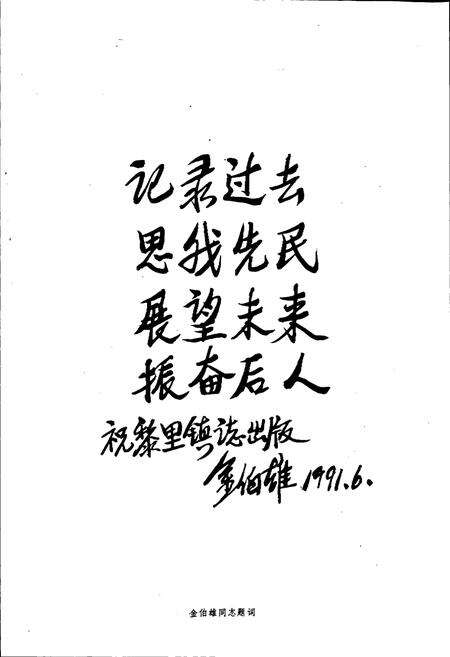 记录过去
思我先民
展望未来
振奋后人
祝黎里镇志出版
金伯雄 1991.6.
金伯雄同志题词